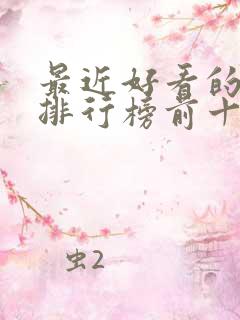 最近好看的
排行榜前十
虫2